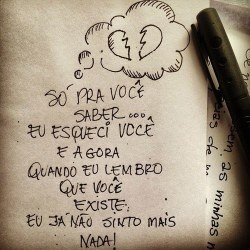 SÓ PRA VOCÊ
SABER...
EU ESQUECI VOCÊ
E AGORA
QUANDO EU LEMBRO
QUE VOCÊ
EXISTE,
EU JÁ NÃO SINTO MAIS
NADA!